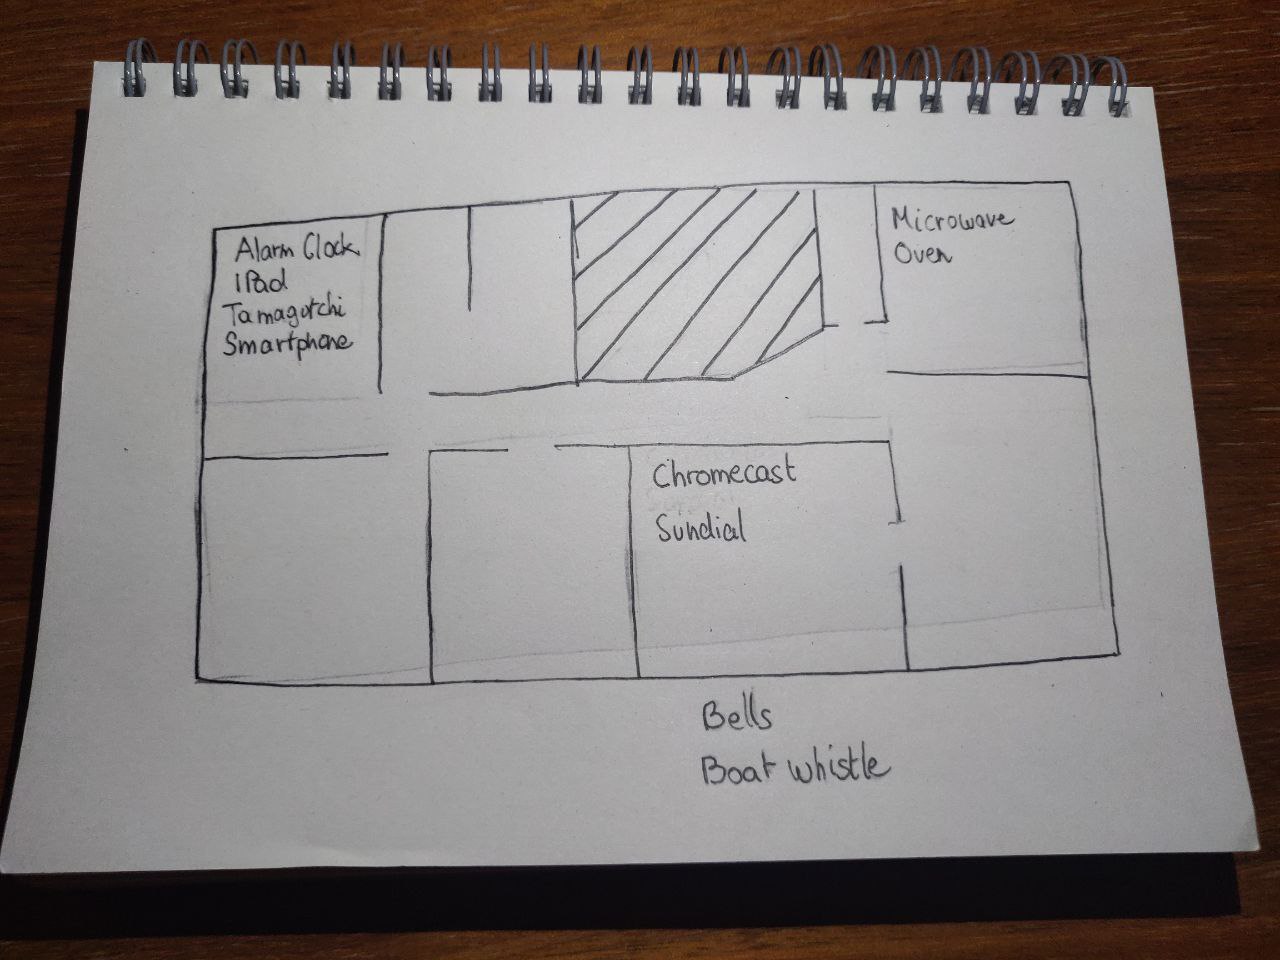 Alarm Clock
IPad
Tamagotchi
Smartphone
Microwave
Oven
Chromecast
Sundial
Bells
Boat whistle